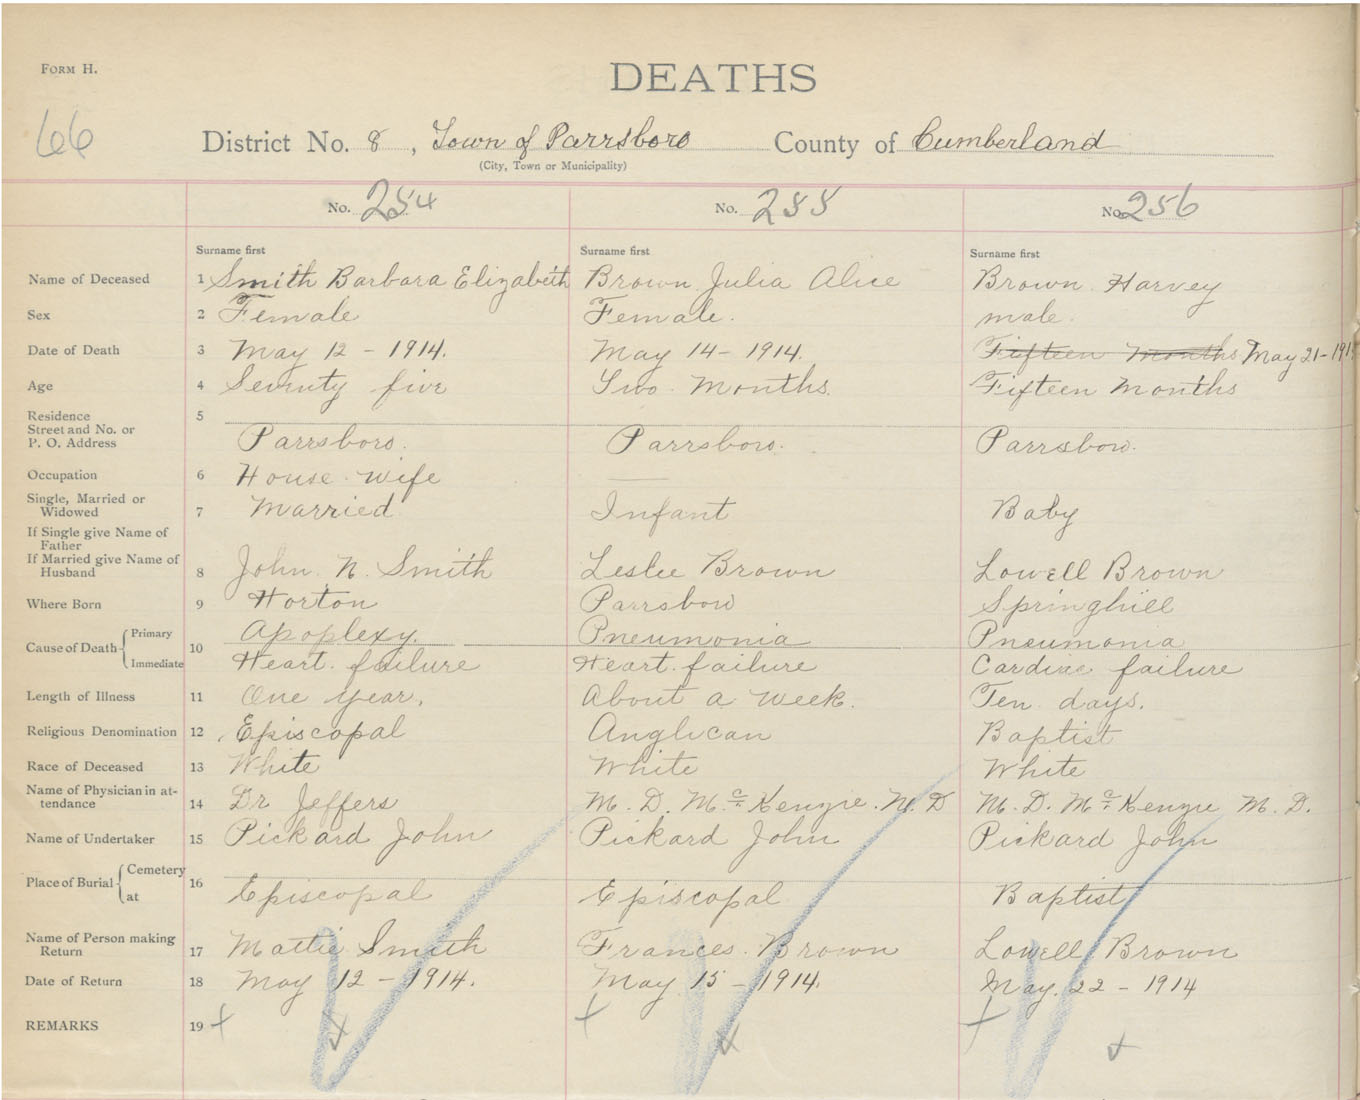 FORM H.
DEATHS
66
District No. 8, Town of Parrsboro County of Cumberland
(City, Town or Municipality)
No. 254 No. 255 No. 256
Surname first Surname first Surname first
Name of Deceased 1 Smith Barbara Elizabeth Brown Julia Alice Brown Harvey
Sex 2 Female Female. male.
Date of Death 3 May 12 - 1914. May 14 - 1914. Fifteen Months May 21 - 191
Age 4 Seventy five Two Months. Fifteen Months
Residence 5
Street and No. or
P. O. Address Parrsboro. Parrsboro. Parrsboro.
Occupation 6 House wife
Single, Married or
Widowed 7 Married Infant Baby
If Single give Name of
Father
If Married give Name of
Husband 8 John N. Smith Leslie Brown Lowell Brown
Where Born 9 Horton Parrsboro Springhill
Cause of Death Primary 10 Apoplexy. Pneumonia Pneumonia
Immediate Heart failure Heart failure Cardiac failure
Length of Illness 11 One year. About a week. Ten days.
Religious Denomination 12 Episcopal Anglican Baptist
Race of Deceased 13 White White White
Name of Physician in at-
tendance 14 Dr Jeffers M. D. McKenzie. M. D M. D. McKenzie M. D.
Name of Undertaker 15 Pickard John Pickard John Pickard John
Place of Burial Cemetery 16
at Episcopal Episcopal Baptist
Name of Person making
Return 17 Mattie Smith Frances Brown Lowell Brown
Date of Return 18 May 12 - 1914. May 15 - 1914. May. 22 - 1914
REMARKS 19